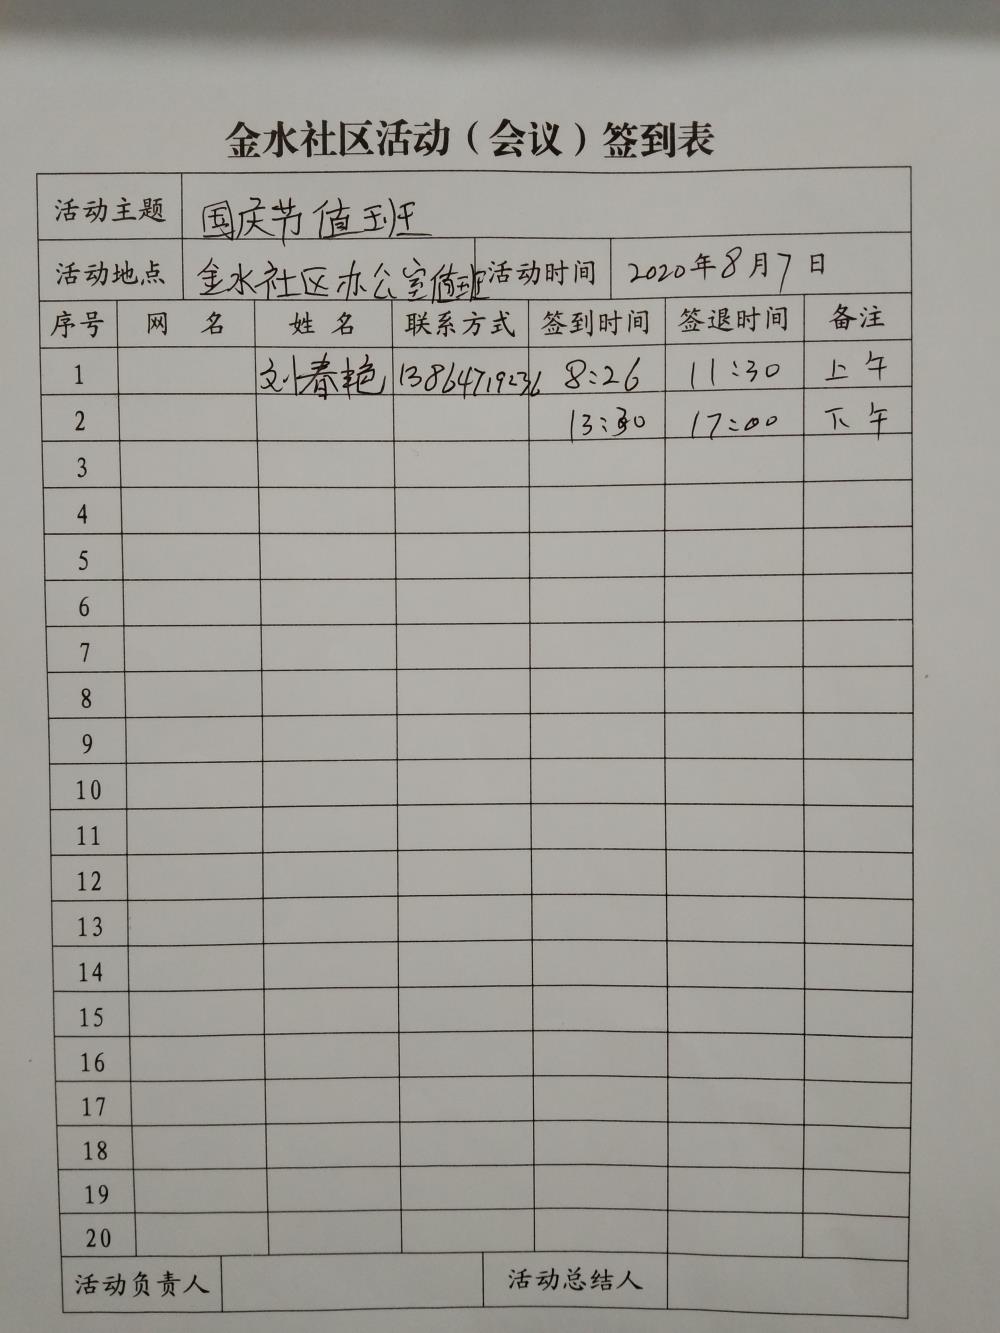 金水社区活动（会议）签到表
活动主题 国庆节值班
活动地点 金水社区办公室值班 活动时间 2020年8月7日
序号 网 名 姓 名 联系方式 签到时间 签退时间 备注
1 刘春艳 13864719236 8:26 11:30 上午
2 13:30 17:00 下午
3
4
5
6
7
8
9
10
11
12
13
14
15
16
17
18
19
20
活动负责人 活动总结人